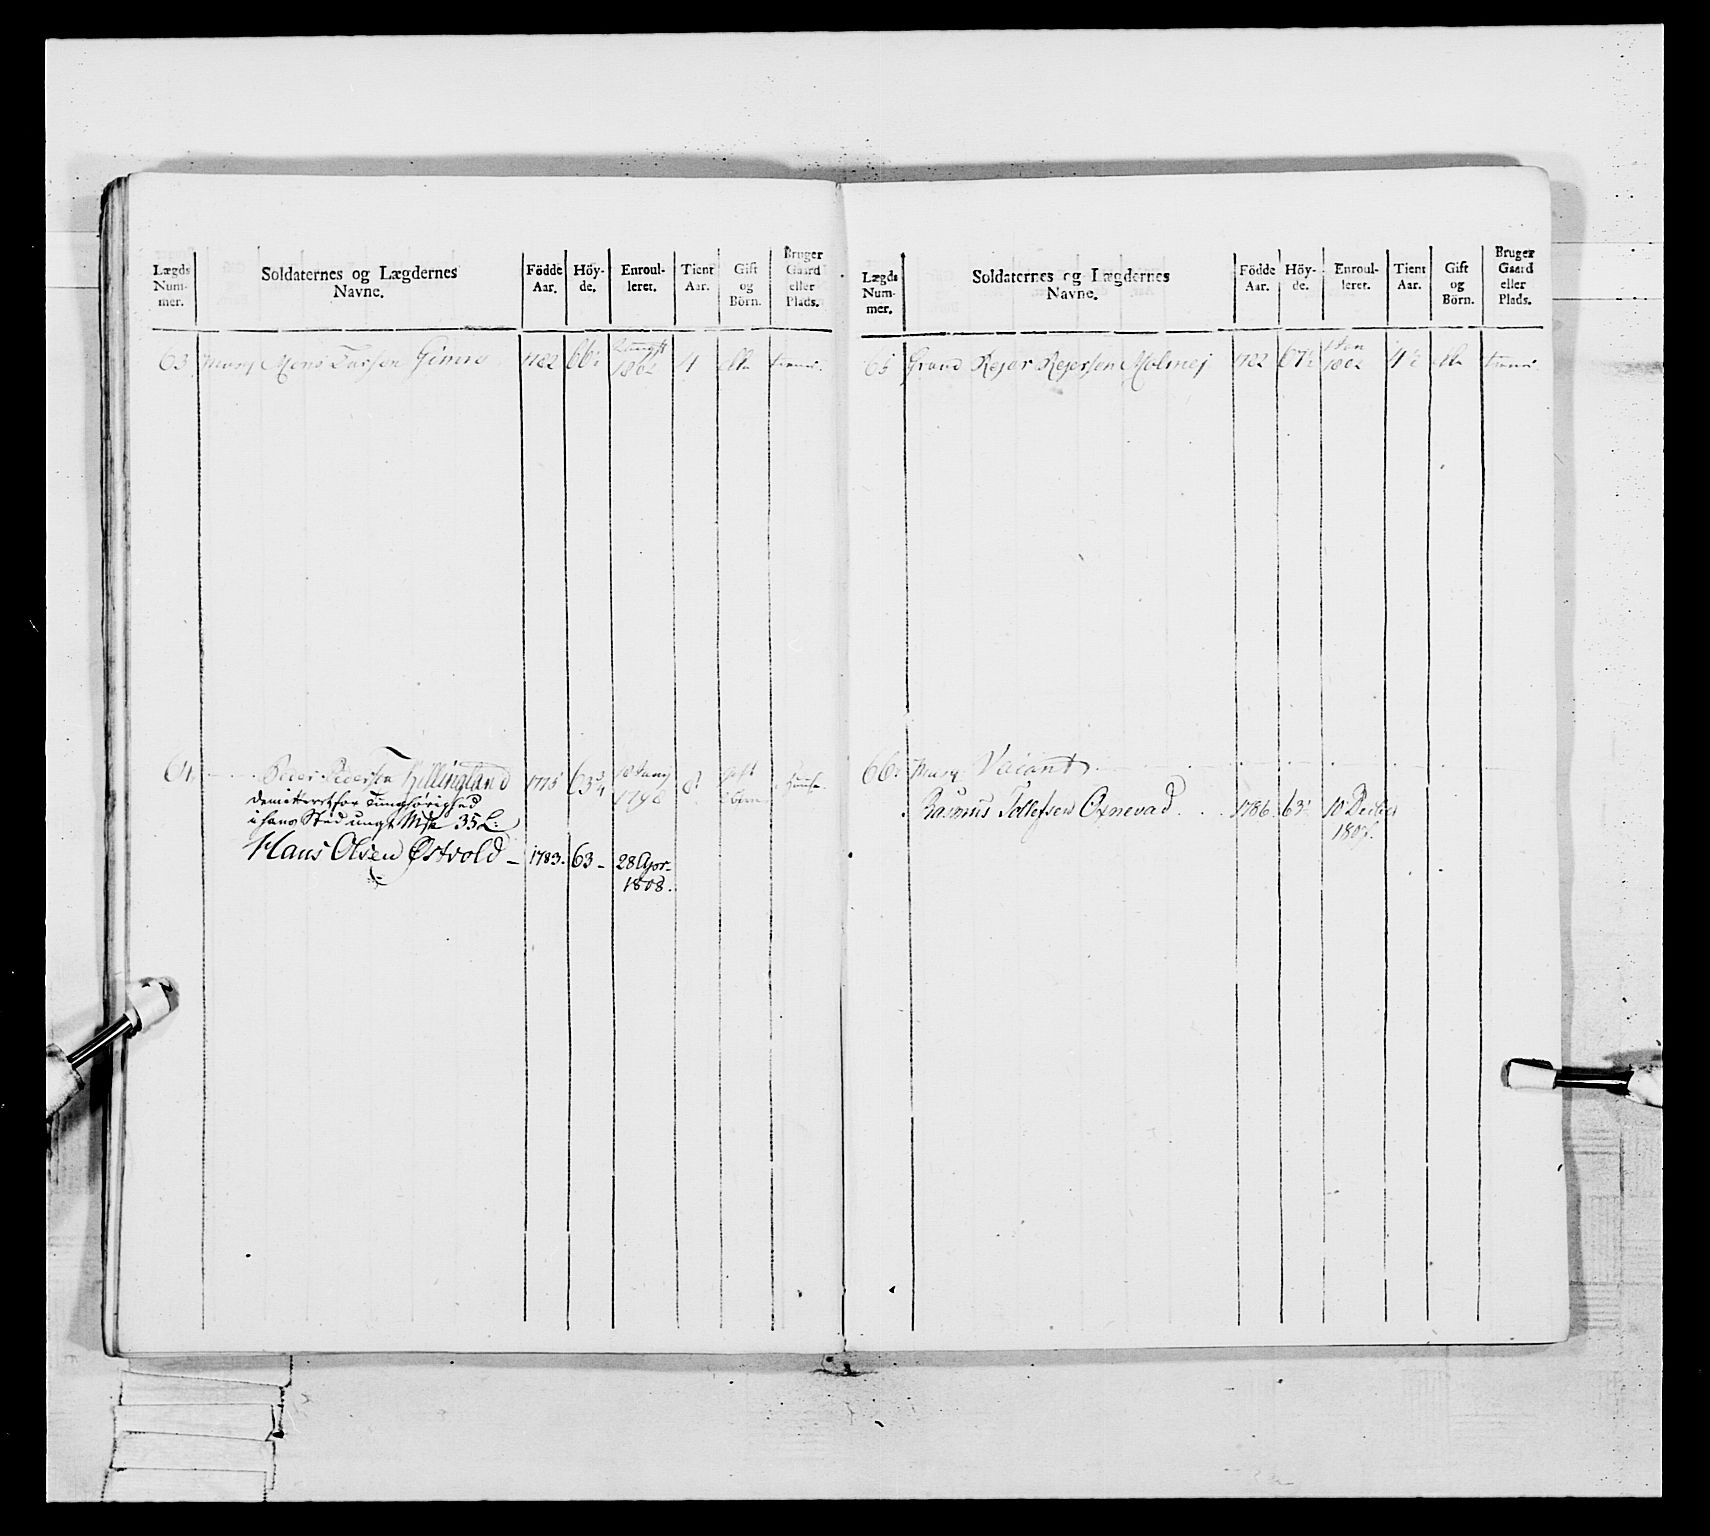 Lægds Num- mer.
Soldaternes og Lægdernes Navne.
Födde Aar.
Höy- de.
Enroul- leret.
Tient Aar.
Gift og Börn.
Bruger Gaard eller Plads.
63 Musq Mons Larsen Gimre 1782 66½ 1802 4
64 Peder Pedersen Hellingland 1775 63¾
1798
demitteret for Tunghørighed
i hans Sted ungt Msk 35 L:
Hans Olsen Østvold – 1783. 63 – 28 Apr.
1808.
Lægds Num- mer.
Soldaternes og Lægdernes Navne.
Födde Aar.
Höy- de.
Enroul- leret.
Tient Aar.
Gift og Börn.
Bruger Gaard eller Plads.
65 Grand Rejer Rejersen Molmej 1782 67½ 1802 4½
66. Musq Vacant
Rasmus Tollefsen Oxnevad 1786 63 10 Decber
1807.